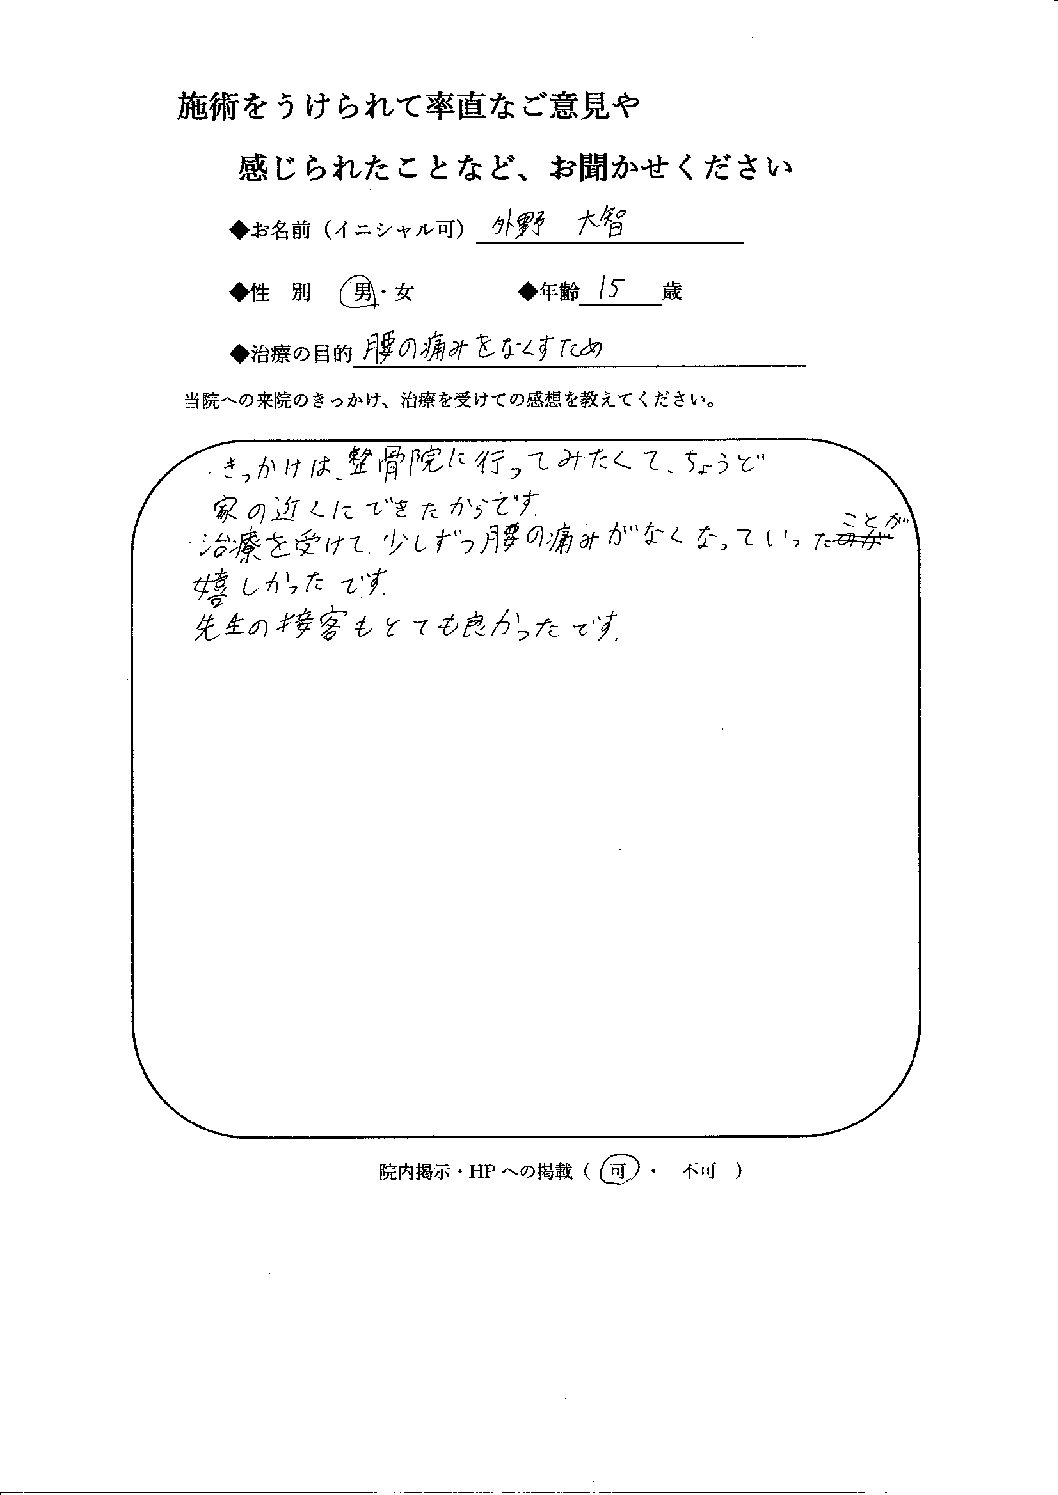 施術をうけられて率直なご意見や
感じられたことなど、お聞かせください
◆お名前（イニシャル可） 外野 大智
◆性 別 男・女 ◆年齢 15 歳
◆治療の目的 腰の痛みをなくすため
当院への来院のきっかけ、治療を受けての感想を教えてください。
・きっかけは、整骨院に行ってみたくて、ちょうど
家の近くにできたからです。
・治療を受けて、少しずつ腰の痛みがなくなっていったことが
嬉しかったです。
先生の接客もとても良かったです。
院内掲示・HPへの掲載（ 可 ・ 不可 ）